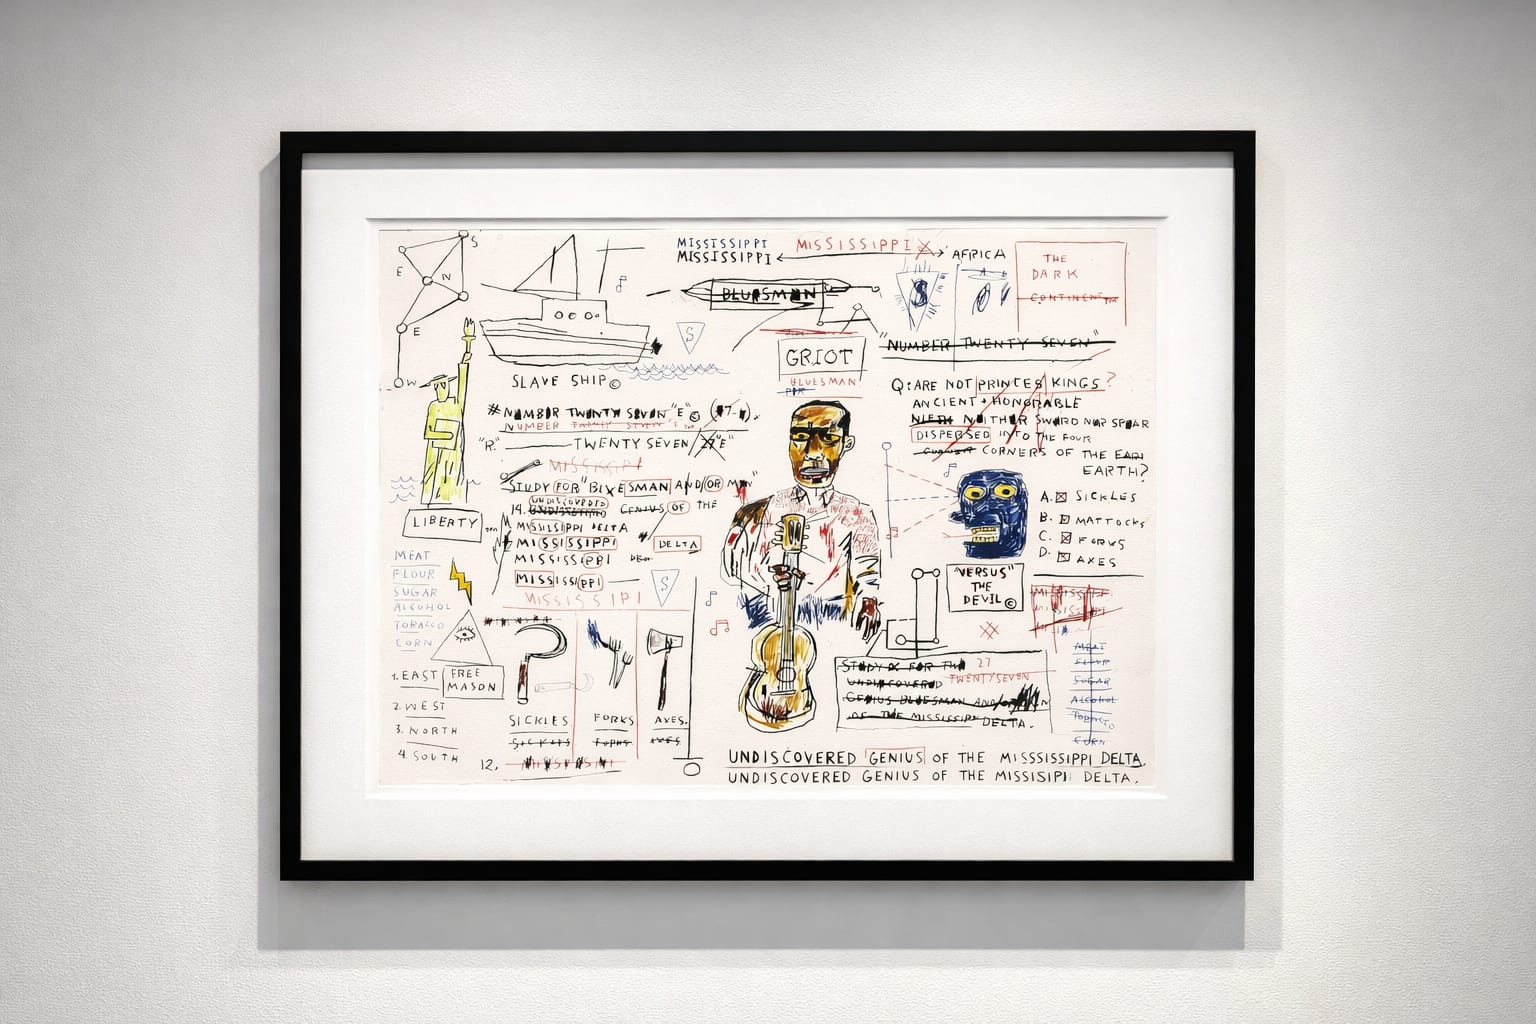 S
E
N
E
W
MISSISSIPPI
MISSISSIPPI
MISSISSIPPI
AFRICA
THE
DARK
CONTINENT™
BLUESMAN
S
S
"NUMBER TWENTY SEVEN"
GRIOT
BLUESMAN
SLAVE SHIP©
Q: ARE NOT PRINCES KINGS?
ANCIENT + HONORABLE
NEITHER SWORD NOR SPEAR
DISPERSED INTO THE FOUR
CORNERS OF THE EAR
EARTH?
A. SICKLES
B. MATTOCKS
C. FORKS
D. AXES
# NUMBER TWENTY SEVEN "E" ©
NUMBER TWENTY SEVEN
"R." TWENTY SEVEN/27"E"
MISSISSIPI
"STUDY FOR "BLUESMAN AND/OR MAN"
UNDISCOVERED
14. GENIUS OF THE
MISSISSIPPI DELTA
MISSISSIPPI DELTA
MISSISSIPPI
MISSISSIPPI
MISSISSIPI
S
LIBERTY
MEAT
FLOUR
SUGAR
ALCOHOL
TOBACCO
CORN
"VERSUS"
THE
DEVIL©
MISSISSIPPI
MISSISSIPPI
MEAT
FLOUR
SUGAR
ALCOHOL
TOBACCO
CORN
1. EAST
2. WEST
3. NORTH
4. SOUTH
FREE
MASON
SICKLES
SICKLES
FORKS
FORKS
AXES.
AXES
12.
STUDY FOR THE 27
UNDISCOVERED TWENTYSEVEN
GENIUS BLUESMAN AND/OR MAN
OF THE MISSISSIPPI DELTA.
UNDISCOVERED GENIUS OF THE MISSSISSIPPI DELTA.
UNDISCOVERED GENIUS OF THE MISSISIPI DELTA.